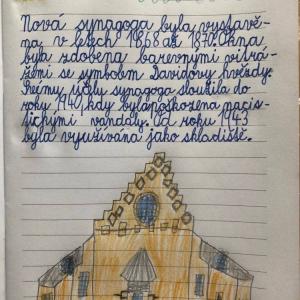 Nová synagoga byla vystavě-
na v letech 1868 až 1870. Okna
byla zdobena barevnými vitrá-
žemi se symbolem Davidovy hvězdy.
Svému účelu synagoga sloužila do
roku 1940, kdy byla poškozena nacis-
tickými vandaly. Od roku 1943
byla využívána jako skladiště.